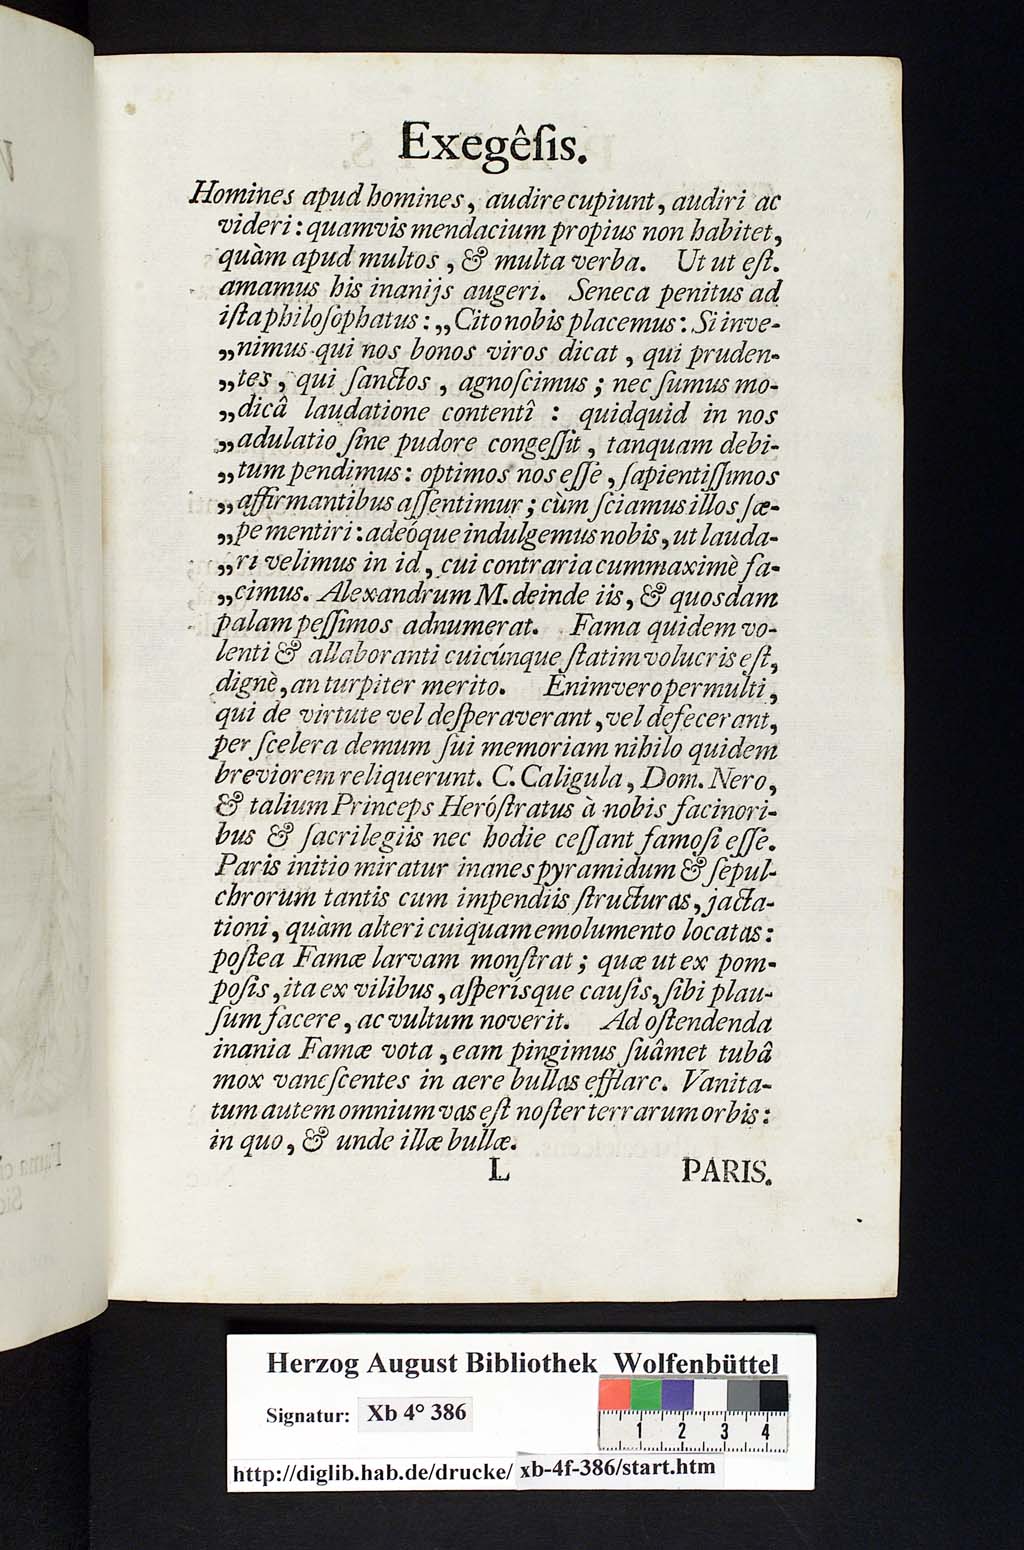 Exegêſis.
Homines apud homines, audire cupiunt, audiri ac
videri: quamvis mendacium propius non habitet,
quàm apud multos, & multa verba. Ut ut eſt.
amamus his inanijs augeri. Seneca penitus ad
iſta philoſophatus: „Cito nobis placemus: Si inve-
„nimus qui nos bonos viros dicat, qui pruden-
„tes, qui ſanctos, agnoſcimus; nec ſumus mo-
„dicâ laudatione contentî: quidquid in nos
„adulatio ſine pudore congeſſit, tanquam debi-
„tum pendimus: optimos nos eſſe, ſapientiſſimos
„affirmantibus aſſentimur; cùm ſciamus illos ſæ-
„pe mentiri: adeóque indulgemus nobis, ut lauda-
„ri velimus in id, cui contraria cummaximè fa-
„cimus. Alexandrum M. deinde iis, & quosdam
palam peſſimos adnumerat. Fama quidem vo-
lenti & allaboranti cuicúnque ſtatim volucris eſt,
dignè, an turpiter merito. Enimvero permulti,
qui de virtute vel deſperaverant, vel defecerant,
per ſcelera demum ſui memoriam nihilo quidem
breviorem reliquerunt. C. Caligula, Dom. Nero,
& talium Princeps Heróſtratus à nobis facinori-
bus & ſacrilegiis nec hodie ceſſant famoſi eſſe.
Paris initio miratur inanes pyramidum & ſepul-
chrorum tantis cum impendiis ſtructuras, jacta-
tioni, quàm alteri cuiquam emolumento locatas:
poſtea Famæ larvam monſtrat; quæ ut ex pom-
poſis, ita ex vilibus, aſperisque cauſis, ſibi plau-
ſum facere, ac vultum noverit. Ad oſtendenda
inania Famæ vota, eam pingimus ſuâmet tubâ
mox vaneſcentes in aere bullas efflare. Vanita-
tum autem omnium vas eſt noſter terrarum orbis:
in quo, & unde illæ bullæ.
L PARIS.
Herzog August Bibliothek Wolfenbüttel
Signatur: Xb 4° 386
1 2 3 4
http://diglib.hab.de/drucke/ xb-4f-386/start.htm